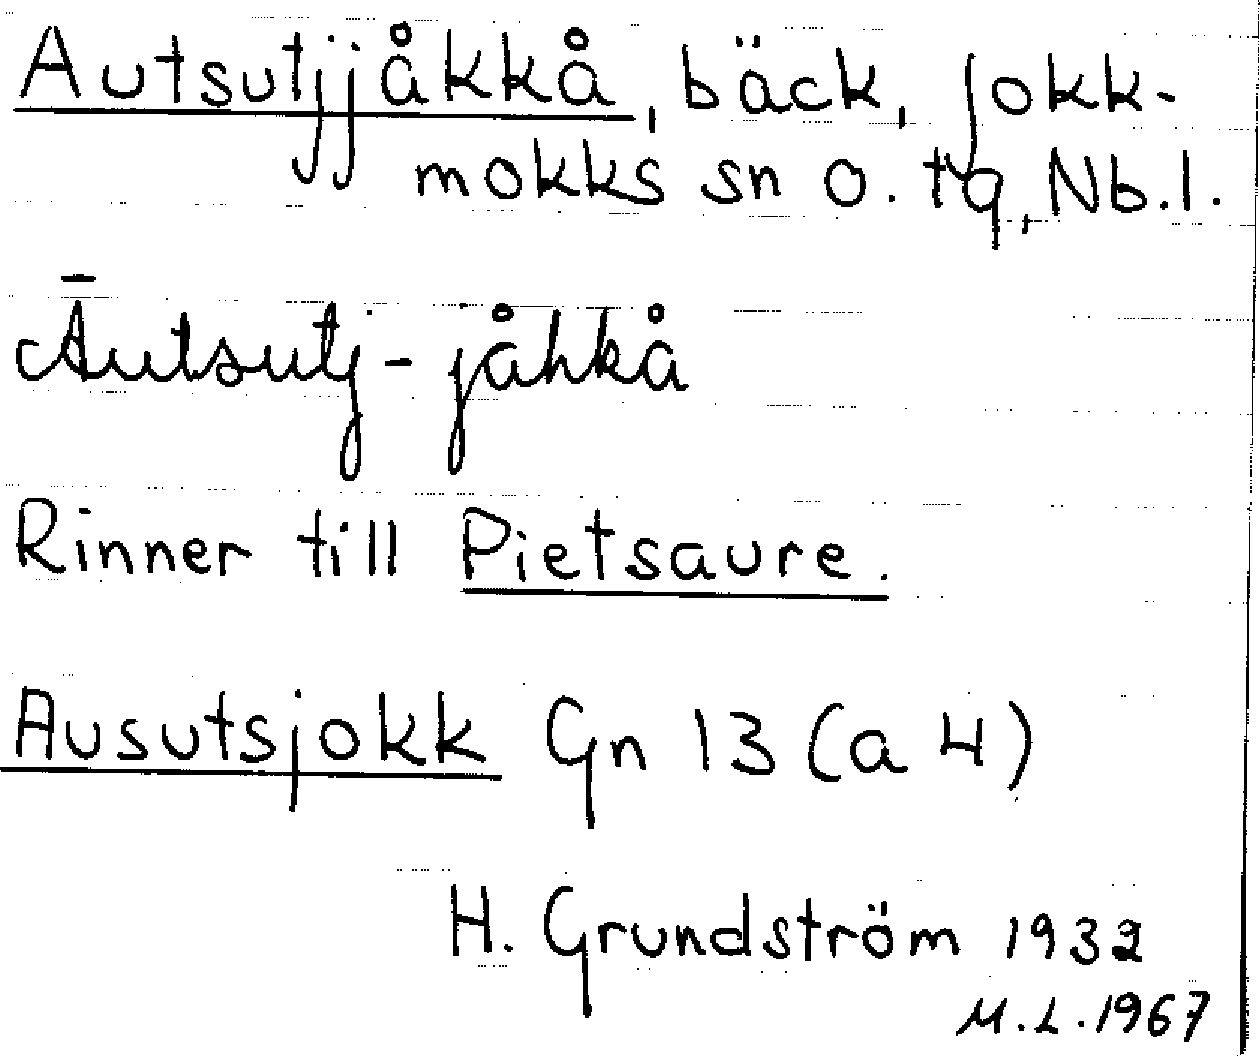 Autsutjjåkkå, bäck, Jokk-
mokks sn o. tg, Nb. l.
Āutsutj-jåhkå
Rinner till Pietsaure.
Ausutsjokk Gn 13 (a 4)
H. Grundström 1932
M.L. 1967